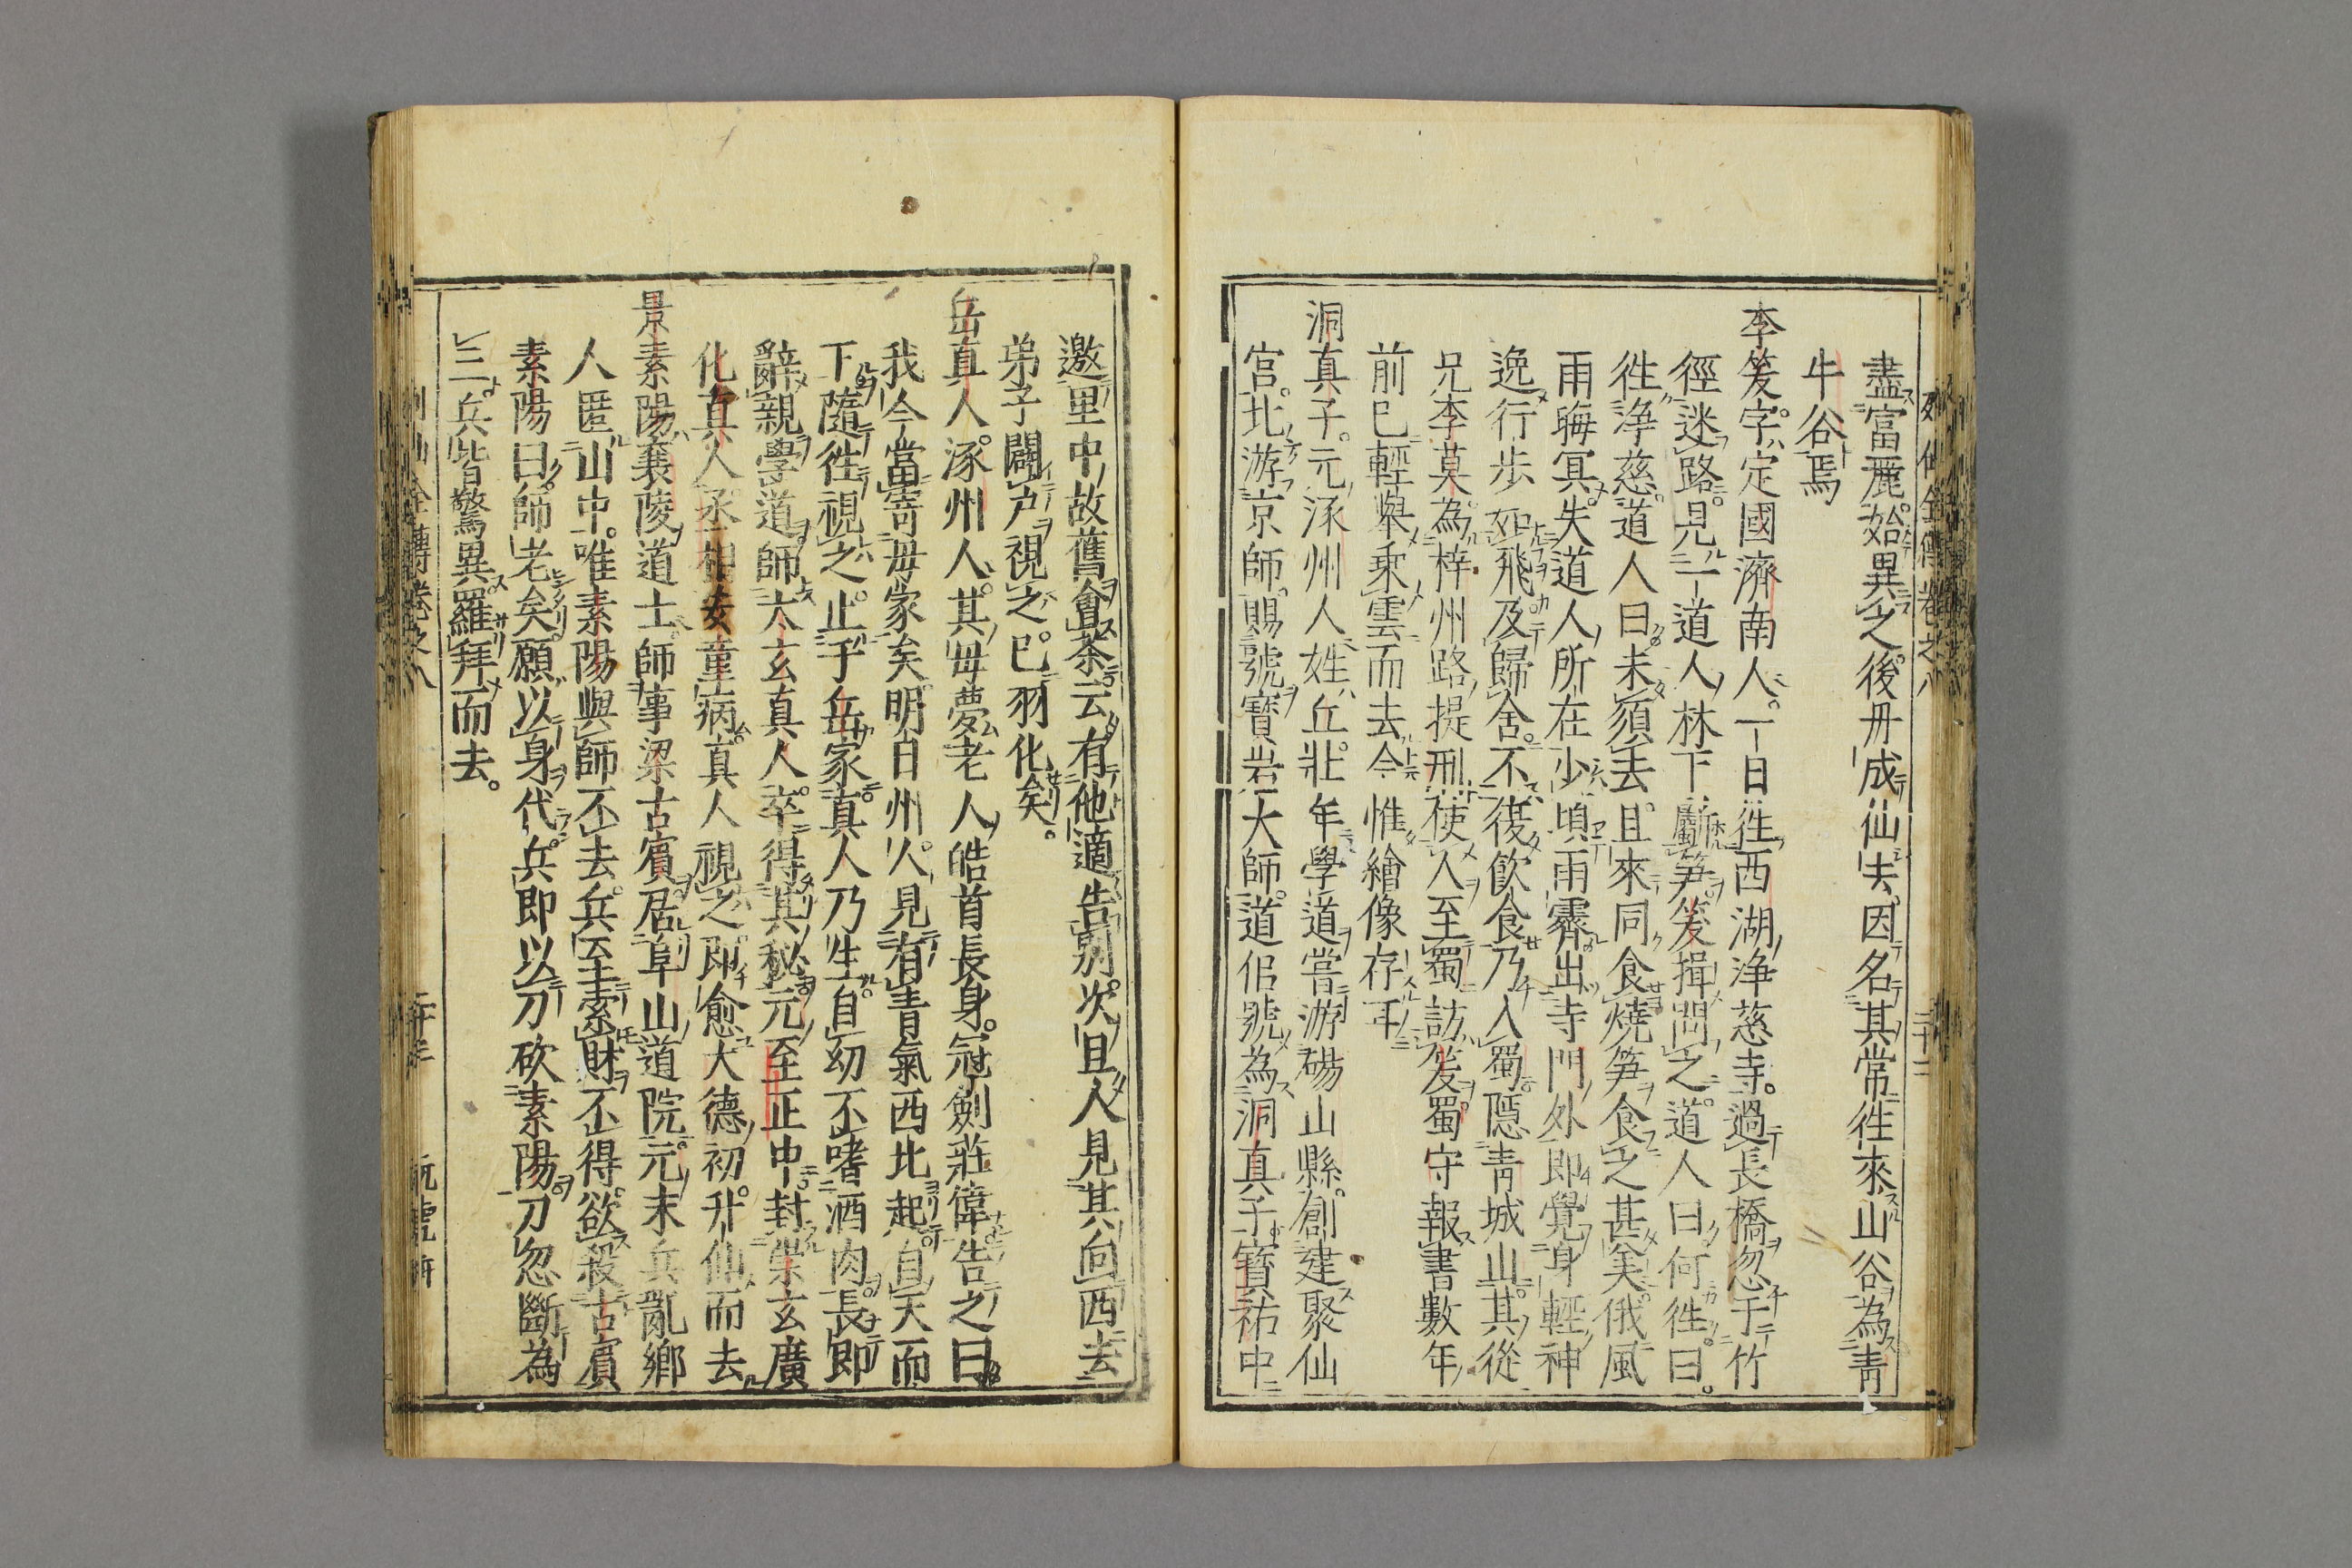 列仙全傳卷之八 三十二
盡富麗。始異之。後丹成仙去、因名其常徃來山谷為青
牛谷焉
李笈字。定國濟南人。一日徃西湖淨慈寺。過長橋忽于竹
徑迷路。見一道人林下斸笋笈揖問之。道人曰何徃。曰。
徃淨慈。道人曰。未須去。且來同食燒笋食之甚美俄風
雨晦冥。失道人所在少頃雨霽出寺門外即覺身輕神
逸行歩如飛及歸舍。不復飲食乃入蜀。隱青城山。其從
兄李莫為梓州路提刑。使人至蜀訪笈。蜀守報書數年
前已輕舉乘雲而去今惟繪像存耳
洞真子。元涿州人姓丘。壯年學道嘗游碭山縣。創建聚仙
宮。北游京師。賜號寶岩大師。道侶號為洞真子寶祐中
邀里中故舊會茶云有他適告別。次且人見其向西去
弟子闢戸視之。已羽化矣。
岳真人。涿州人。其母夢老人皓首長身。冠劍莊偉告之曰
我今當寄母家矣。明日州人。見有青氣西北起。自天而
下隨徃視之。止于岳家。真人乃生。自幼不嗜酒肉。長即
辭親學道。師太玄真人。卒得其秘元至正中。封崇玄廣
化真人丞相安童病。真人視之即愈大德初。升仙而去
景素陽襄陵道士師事梁古賓居阜山道院。元末兵亂鄉
人匿山中。唯素陽與師不去。兵至索財不得。欲殺古賓
素陽曰。師老矣。願以身代。兵即以刀砍素陽刀忽斷為
三。兵皆驚異羅拜而去。
列仙全傳卷之八